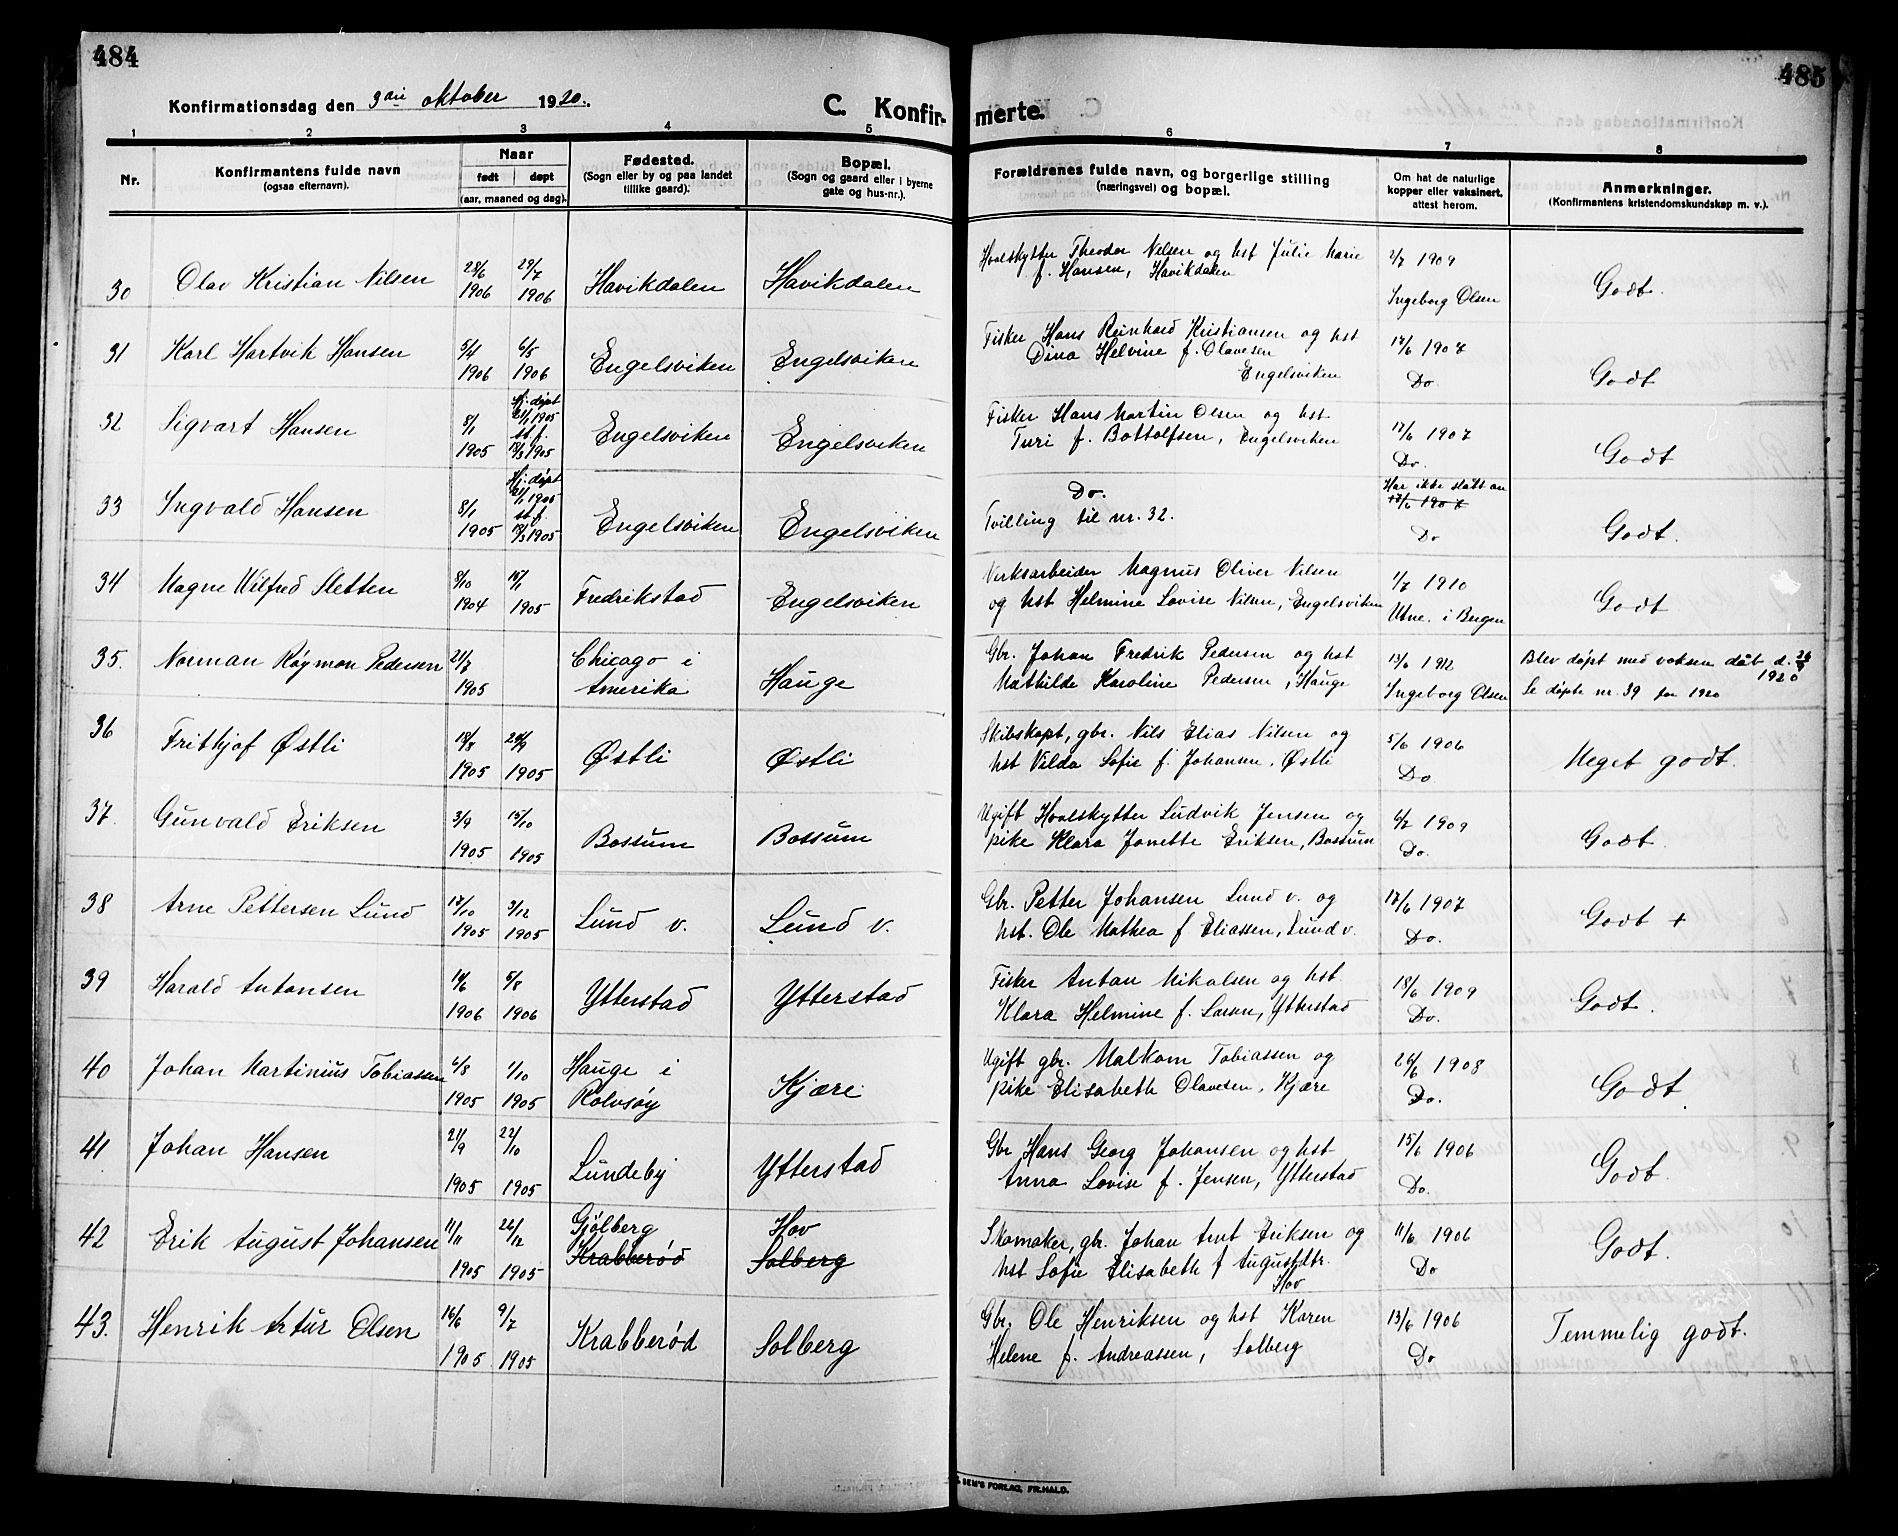 484
Konfirmationsdag den 3die oktober 1920.
C. Konfir-
1 2 3 4 5
Nr.
Konfirmantens fulde navn
(ogsaa efternavn).
Naar
født døpt
(aar, maaned og dag).
Fødested.
(Sogn eller by og paa landet
tillike gaard).
Bopæl.
(Sogn og gaard eller i byerne
gate og hus-nr.).
30 Olav Kristian Nilsen 28/6 1906 29/7 1906 Havikdalen Havikdalen
31 Karl Hartvik Hansen 5/4 1906 6/5 1906 Engelsviken Engelsviken
32 Sigvart Hansen 8/1 1905 Hj. døpt 21/1 1905 st. f. 12/3 1905 Engelsviken Engelsviken
33 Ingvald Hansen 8/1 1905 Hj. døpt 21/1 1905 st. f. 12/3 1905 Engelsviken Engelsviken
34 Magne Wilfred Sletten 8/10 1904 15/1 1905 Fredrikstad Engelsviken
35. Norman Røymon Pedersen 21/7 1905 Chicago i Amerika Hauge
36 Frithjof Østli 18/8 1905 24/9 1905 Østli Østli
37. Gunvald Eriksen 3/9 1905 15/10 1905 Bossum Bossum
38 Arne Pettersen Lund 17/10 1905 3/12 1905 Lund v. Lund v.
39 Harald Antonsen 14/6 1906 5/8 1906 Ytterstad Ytterstad
40 Johan Martinius Tobiassen 6/8 1905 1/10 1905 Hauge i Rolvsøy Kjære
41 Johan Hansen 21/9 1905 22/10 1905 Lundeby Ytterstad
42 Erik August Johansen 11/11 1905 26/12 1905 Gjølberg Krabberød Hov Solberg
43. Henrik Artur Olsen 16/6 1905 9/7 1905 Krabberød Solberg
485
merte.
6 7 8
Forældrenes fulde navn, og borgerlige stilling
(næringsvei) og bopæl.
Om hat de naturlige
kopper eller vaksinert,
attest herom.
Anmerkninger.
(Konfirmantens kristendomskundskap m. v.).
Hvalskytter Theodor Nilsen og hst Julie Marie 2/7 1909
f. Hansen, Havikdalen Ingeborg Olsen Godt.
Fisker Hans Reinhard Kristiansen og hst 17/6 1907
Dina Helvine f. Olavesen
Engelsviken Do Godt
Fisker Hans Martin Olsen og hst 17/6 1907
Turi f. Bottolfsen, Engelsviken Do. Godt
Do. Har ikke slått an
17/6 1907
Tvilling til nr. 32. Do Godt.
Verksarbeider Magnus Oliver Nilsen 1/7 1910
og hst Helmine Lovise Nilsen, Engelsviken i Bergen Godt
Gbr. Johan Fredrik Pedersen og hst 13/6 1912 Blev døpt med voksen dåb d.
1920
Mathilde Karoline Pedersen, Hauge Ingeborg Olsen Se døpte nr. 39 for 1920
Skibskapt, gbr. Nils Elias Nilsen og 5/6 1906
hst Vilda Sofie f. Johansen, Østli Do Meget godt.
Ugift Hvalskytter Ludvik Jensen og 6/7 1909
pike Klara Jonette Eriksen, Bossum Do. Godt.
Gbr. Petter Johansen Lund v. og 17/6 1907
hst. Ole Mathea f Eliassen, Lund v. Do. Godt +
Fisker Anton Nikolsen og hst 18/6 1909
Klara Helmine f. Larsen, Ytterstad Do. Godt.
Ugift gbr. Malkom Tobiassen og 26/6 1908
pike Elisabeth Olavesen, Kjære Do. Godt.
Gbr Hans Georg Johansen og hst 15/6 1906
Anna Lovise f. Jensen, Ytterstad Do. Godt.
Skomaker, gbr. Johan Arnt Eriksen og 11/6 1906
hst Sofie Elisabeth f Augustdtr. Do Godt.
Hov
Gbr. Ole Henriksen og hst Karen 13/6 1906
Helene f. Andreassen, Solberg Do Temmelig godt.
SEM'S FORLAG, FR.HALD.